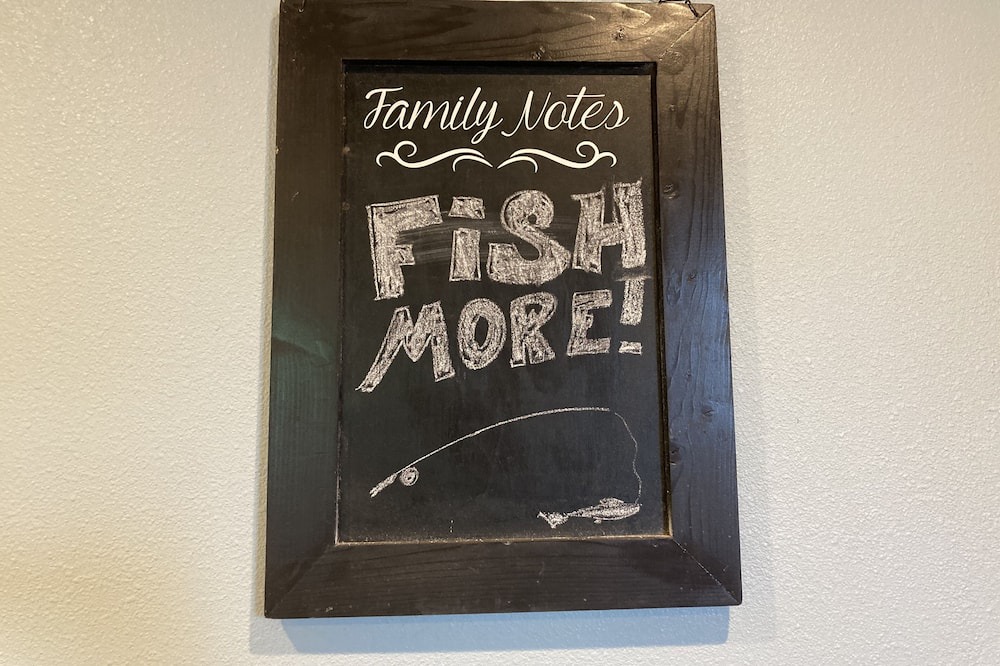 Family Notes
FiSH
MORE!